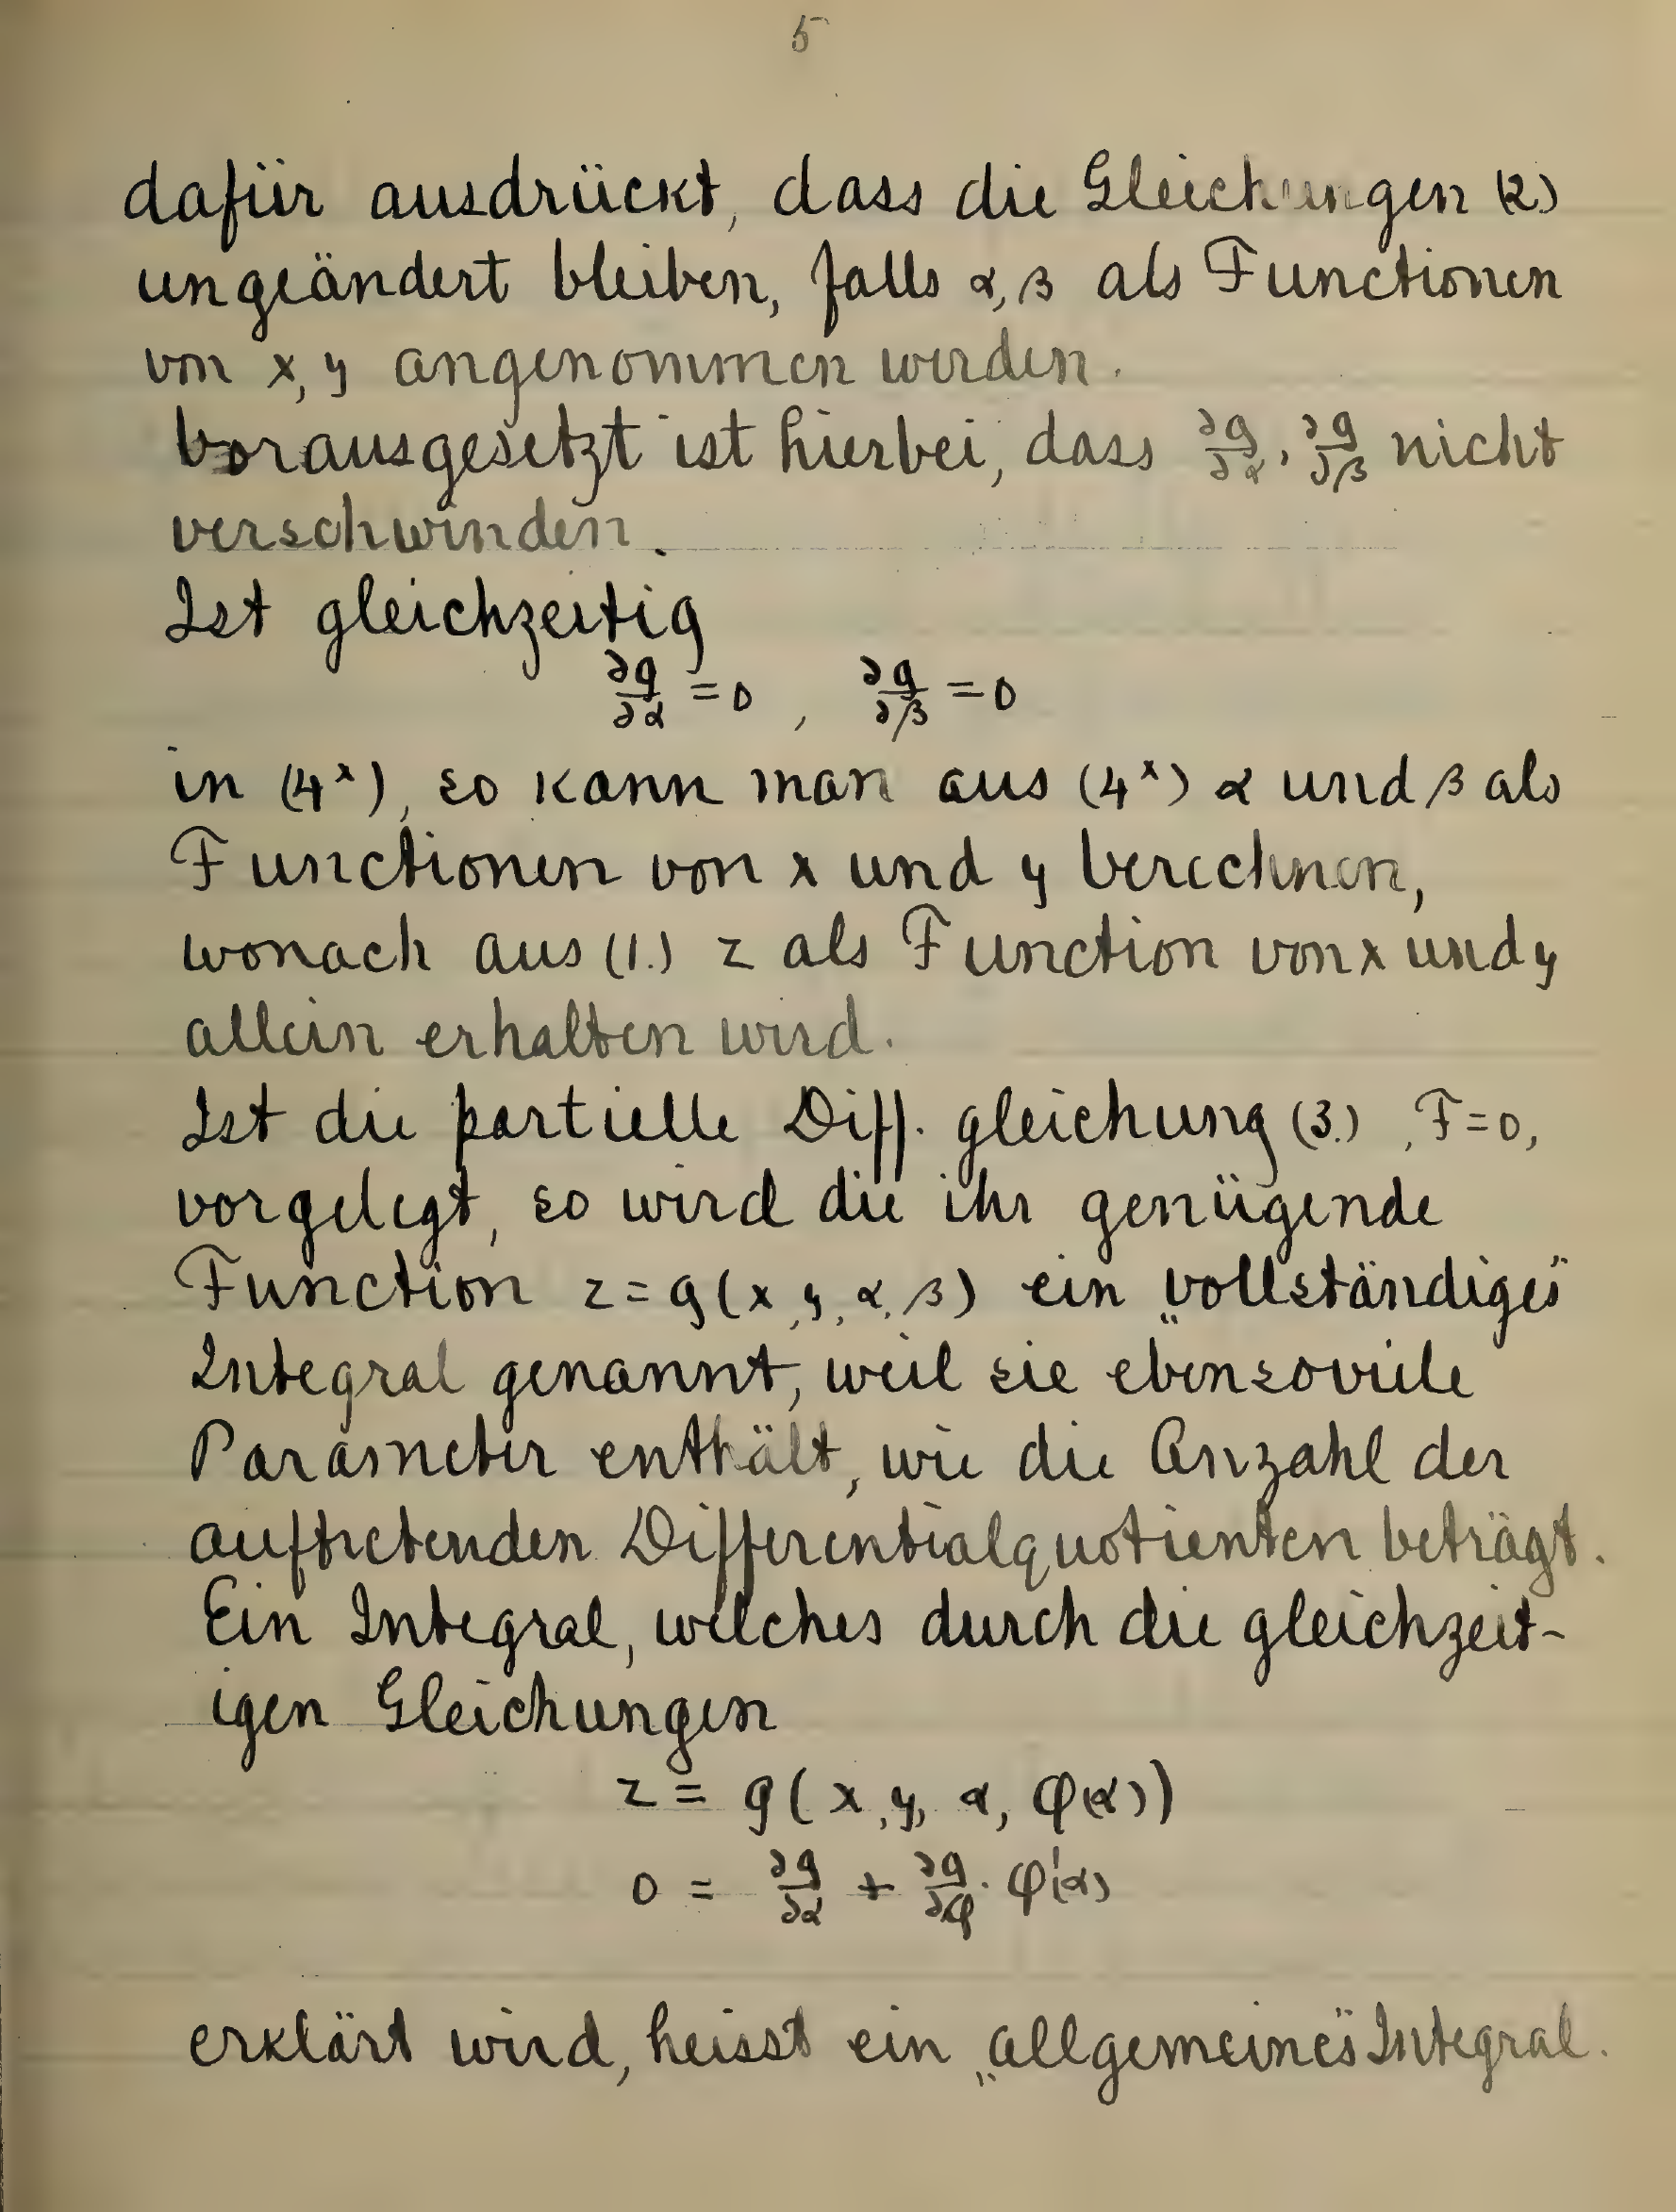 5
dafür ausdrückt, dass die Gleichungen (2.)
ungeändert bleiben, falls α, β als Functionen
von x, y angenommen werden.
Vorausgesetzt ist hierbei, dass ∂g/∂α, ∂g/∂β nicht
verschwinden.
Ist gleichzeitig
∂g/∂α = 0 , ∂g/∂β = 0
in (4ˣ), so kann man aus (4ˣ) α und β als
Functionen von x und y berechnen,
wonach aus (1.) z als Function von x und y
allein erhalten wird.
Ist die partielle Diff. gleichung (3.) , F=0,
vorgelegt, so wird die ihr genügende
Function z = g(x, y, α, β) ein „vollständiges"
Integral genannt, weil sie ebensoviele
Parameter enthält, wie die Anzahl der
auftretenden Differentialquotienten beträgt.
Ein Integral, welches durch die gleichzeit-
igen Gleichungen
z = g(x, y, α, φ(α))
0 = ∂g/∂α + ∂g/∂φ · φ'(α)
erklärt wird, heisst ein „allgemeines" Integral.